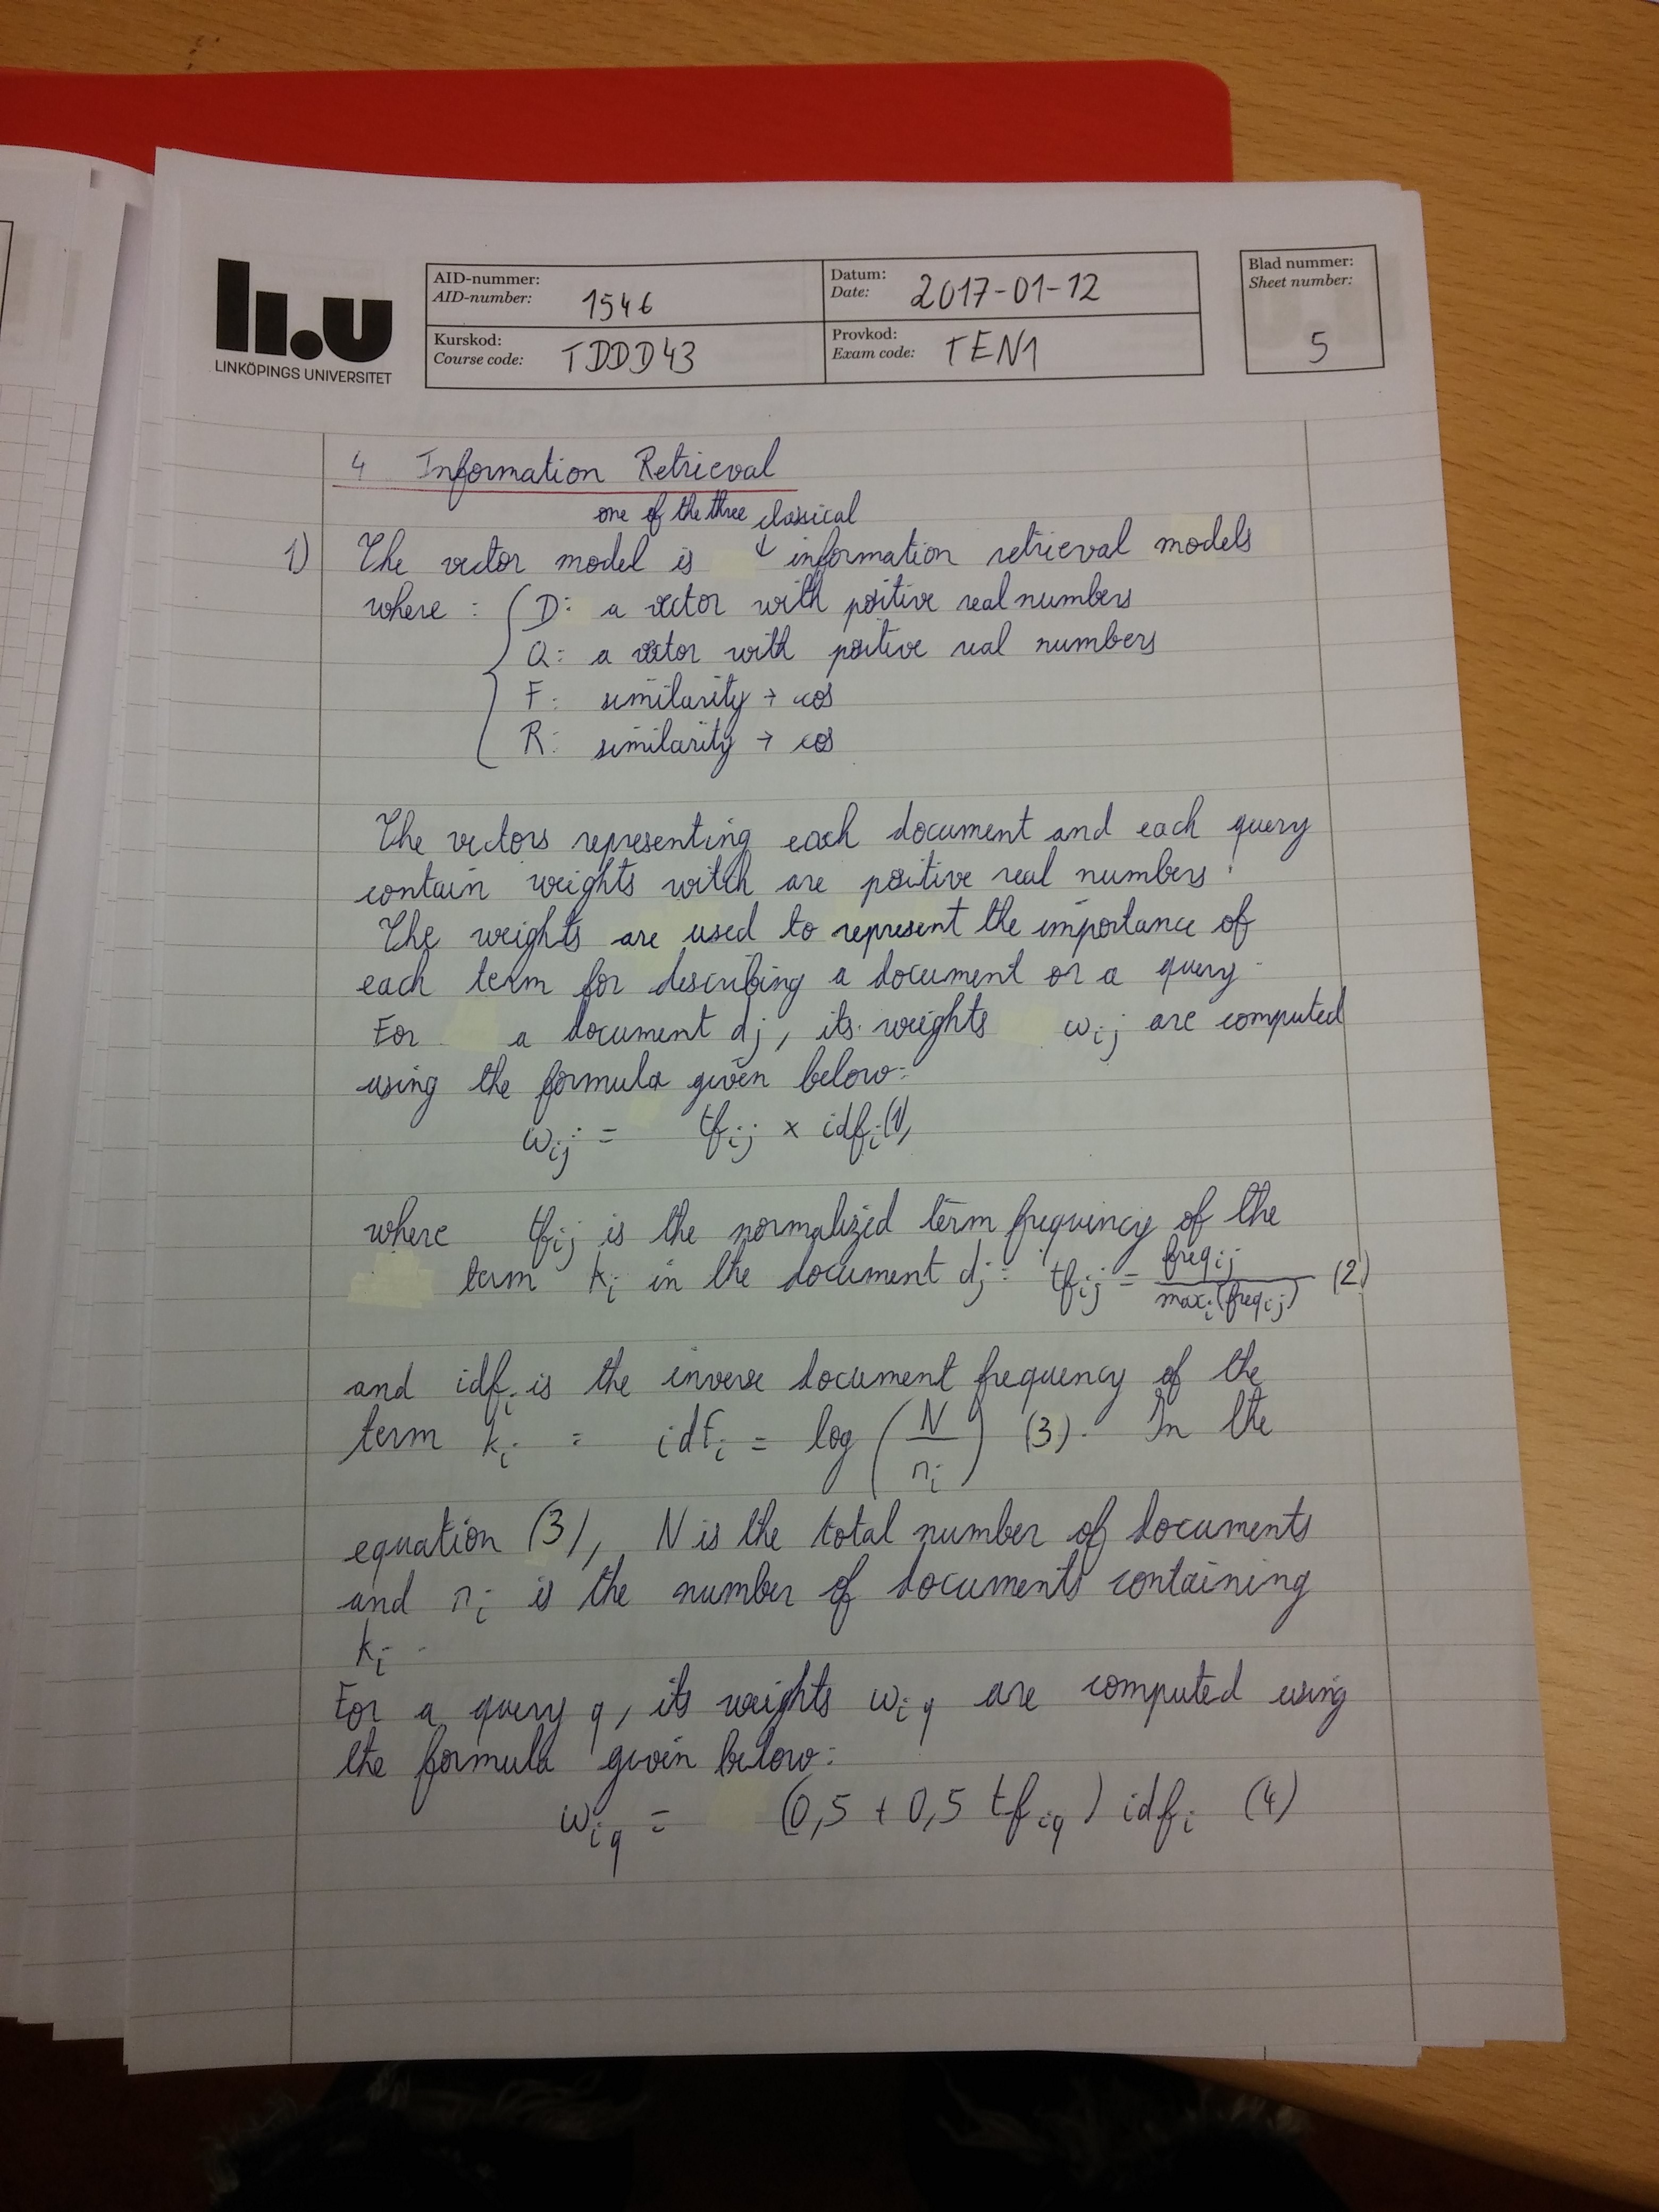 li.u
LINKÖPINGS UNIVERSITET
AID-nummer:
AID-number: 1546
Datum:
Date: 2017-01-12
Blad nummer:
Sheet number:
5
Kurskod:
Course code: TDDD43
Provkod:
Exam code: TEN1
4 Information Retrieval
one of the three classical
1) The vector model is ↓ information retrieval models
where : { D: a vector with positive real numbers
Q: a vector with positive real numbers
F: similarity → cos
R: similarity → cos
The vectors representing each document and each query
contain weights witch are positive real numbers.
The weights are used to represent the importance of
each term for describing a document or a query.
For a document dj, its weights wij are computed
using the formula given below:
wij = tfij × idfi (1),
where tfij is the normalized term frequency of the
term ki in the document dj: tfij = freqij / maxi(freqij) (2)
and idfi is the inverse document frequency of the
term ki : idfi = log (N / ni) (3). In the
equation (3), N is the total number of documents
and ni is the number of documents containing
ki.
For a query q, its weights wiq are computed using
the formula given below:
wiq = (0,5 + 0,5 tfiq) idfi (4)